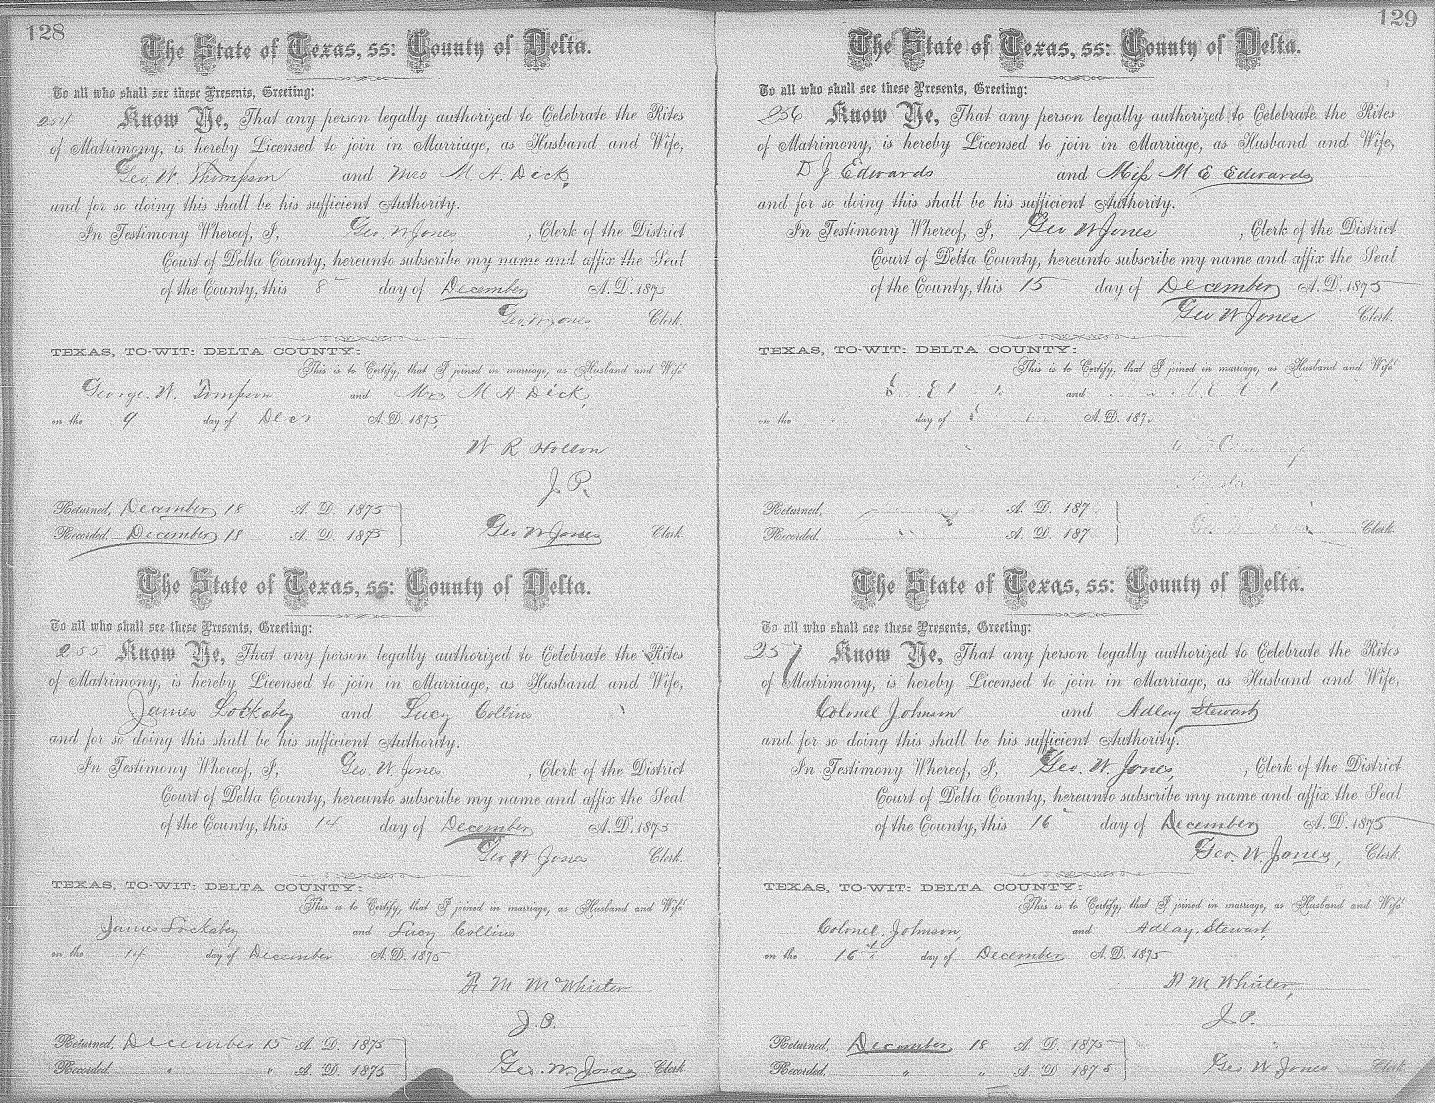 128
The State of Texas, ss: County of Delta.
To all who shall see these Presents, Greeting:
254 Know Ye, That any person legally authorized to Celebrate the Rites
of Matrimony, is hereby Licensed to join in Marriage, as Husband and Wife,
Geo. W. Thompson and Mrs M. A. Dick,
and for so doing this shall be his sufficient Authority.
In Testimony Whereof, I, Geo. W Jones, Clerk of the District
Court of Delta County, hereunto subscribe my name and affix the Seal
of the County, this 8 day of December A.D. 1875
Geo W Jones Clerk.
TEXAS, TO-WIT: DELTA COUNTY:
This is to Certify, that I joined in marriage, as Husband and Wife
George. W. Tompson and Mrs M A Dick,
on the 9 day of Decr A.D. 1875
W R
J. P.
Returned, December 18 A. D. 1875
Recorded, December 18 A. D. 1875 Geo W Jones Clerk
The State of Texas, ss: County of Delta.
To all who shall see these Presents, Greeting:
255 Know Ye, That any person legally authorized to Celebrate the Rites
of Matrimony, is hereby Licensed to join in Marriage, as Husband and Wife,
James Locksby and Lucy Collins
and for so doing this shall be his sufficient Authority.
In Testimony Whereof, I, Geo. W Jones, Clerk of the District
Court of Delta County, hereunto subscribe my name and affix the Seal
of the County, this 14 day of December A.D. 1875
Geo W Jones Clerk.
TEXAS, TO-WIT: DELTA COUNTY:
This is to Certify, that I joined in marriage, as Husband and Wife
James Locksby and Lucy Collins
on the 14 day of December A.D. 1875
M McWhirter
J. P.
Returned, December 15 A. D. 1875
Recorded, " " A. D. 1875 Geo. W. Jones Clerk
129
The State of Texas, ss: County of Delta.
To all who shall see these Presents, Greeting:
256 Know Ye, That any person legally authorized to Celebrate the Rites
of Matrimony, is hereby Licensed to join in Marriage, as Husband and Wife,
D J Edwards and Miss M E Edwards
and for so doing this shall be his sufficient Authority.
In Testimony Whereof, I, Geo W Jones, Clerk of the District
Court of Delta County, hereunto subscribe my name and affix the Seal
of the County, this 15 day of December A.D. 1875
Geo W Jones Clerk.
TEXAS, TO-WIT: DELTA COUNTY:
This is to Certify, that I joined in marriage, as Husband and Wife
and
on the day of A.D. 187
Returned, A. D. 187
Recorded, A. D. 187 Clerk
The State of Texas, ss: County of Delta.
To all who shall see these Presents, Greeting:
257 Know Ye, That any person legally authorized to Celebrate the Rites
of Matrimony, is hereby Licensed to join in Marriage, as Husband and Wife,
Colonel Johnson and Adlay Stewart
and for so doing this shall be his sufficient Authority.
In Testimony Whereof, I, Geo. W. Jones, Clerk of the District
Court of Delta County, hereunto subscribe my name and affix the Seal
of the County, this 16 day of December A.D. 1875
Geo. W. Jones, Clerk.
TEXAS, TO-WIT: DELTA COUNTY:
This is to Certify, that I joined in marriage, as Husband and Wife
Colonel. Johnson, and Adlay. Stewart,
on the 16th day of December A.D. 1875
M Whirter,
J. P.
Returned, December 18 A. D. 1875
Recorded, " " A. D. 1875 Geo W Jones Clerk